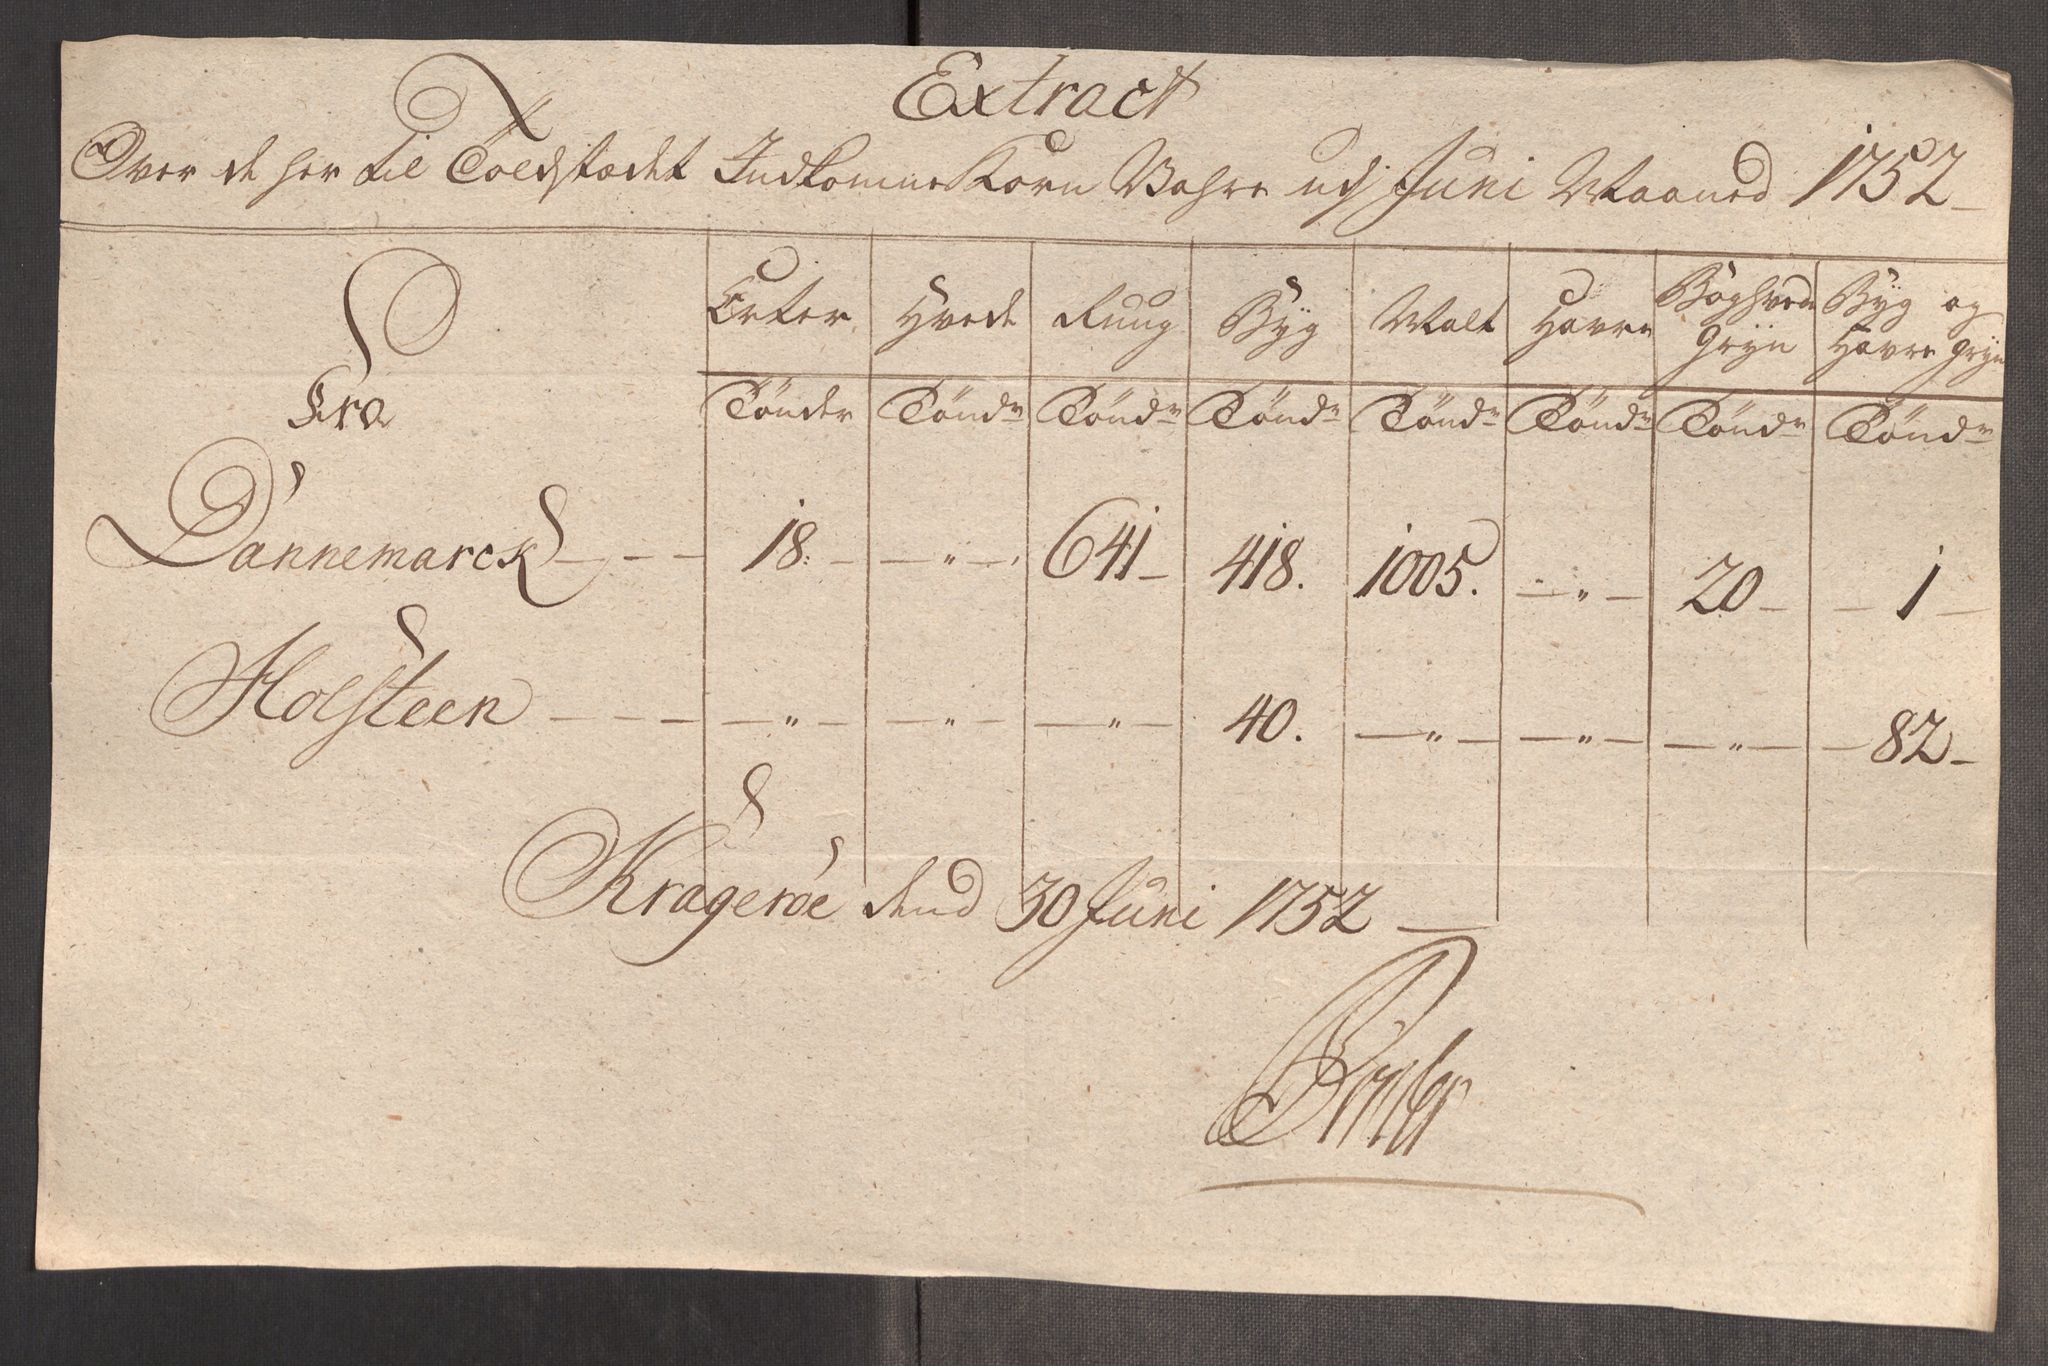 Extract
Over de her til Toldstædet Indkomne Korn Vahre udj Juni Maaned 1752
Fra
Erter Hvede Ruug Byg Malt Havre Boghvede Gryn Byg og Havre Gryn
Tönder Töndr Töndr Töndr Töndr Töndr Töndr Töndr
Dannemarck — — 18: — — " — 641 — 418. 1005. — " — 20 — — 1 —
Holsteen — — — — " — — " — — " — 40. — " — — " — — " — — 82 —
Krageröe dend 30 Juni 1752 —